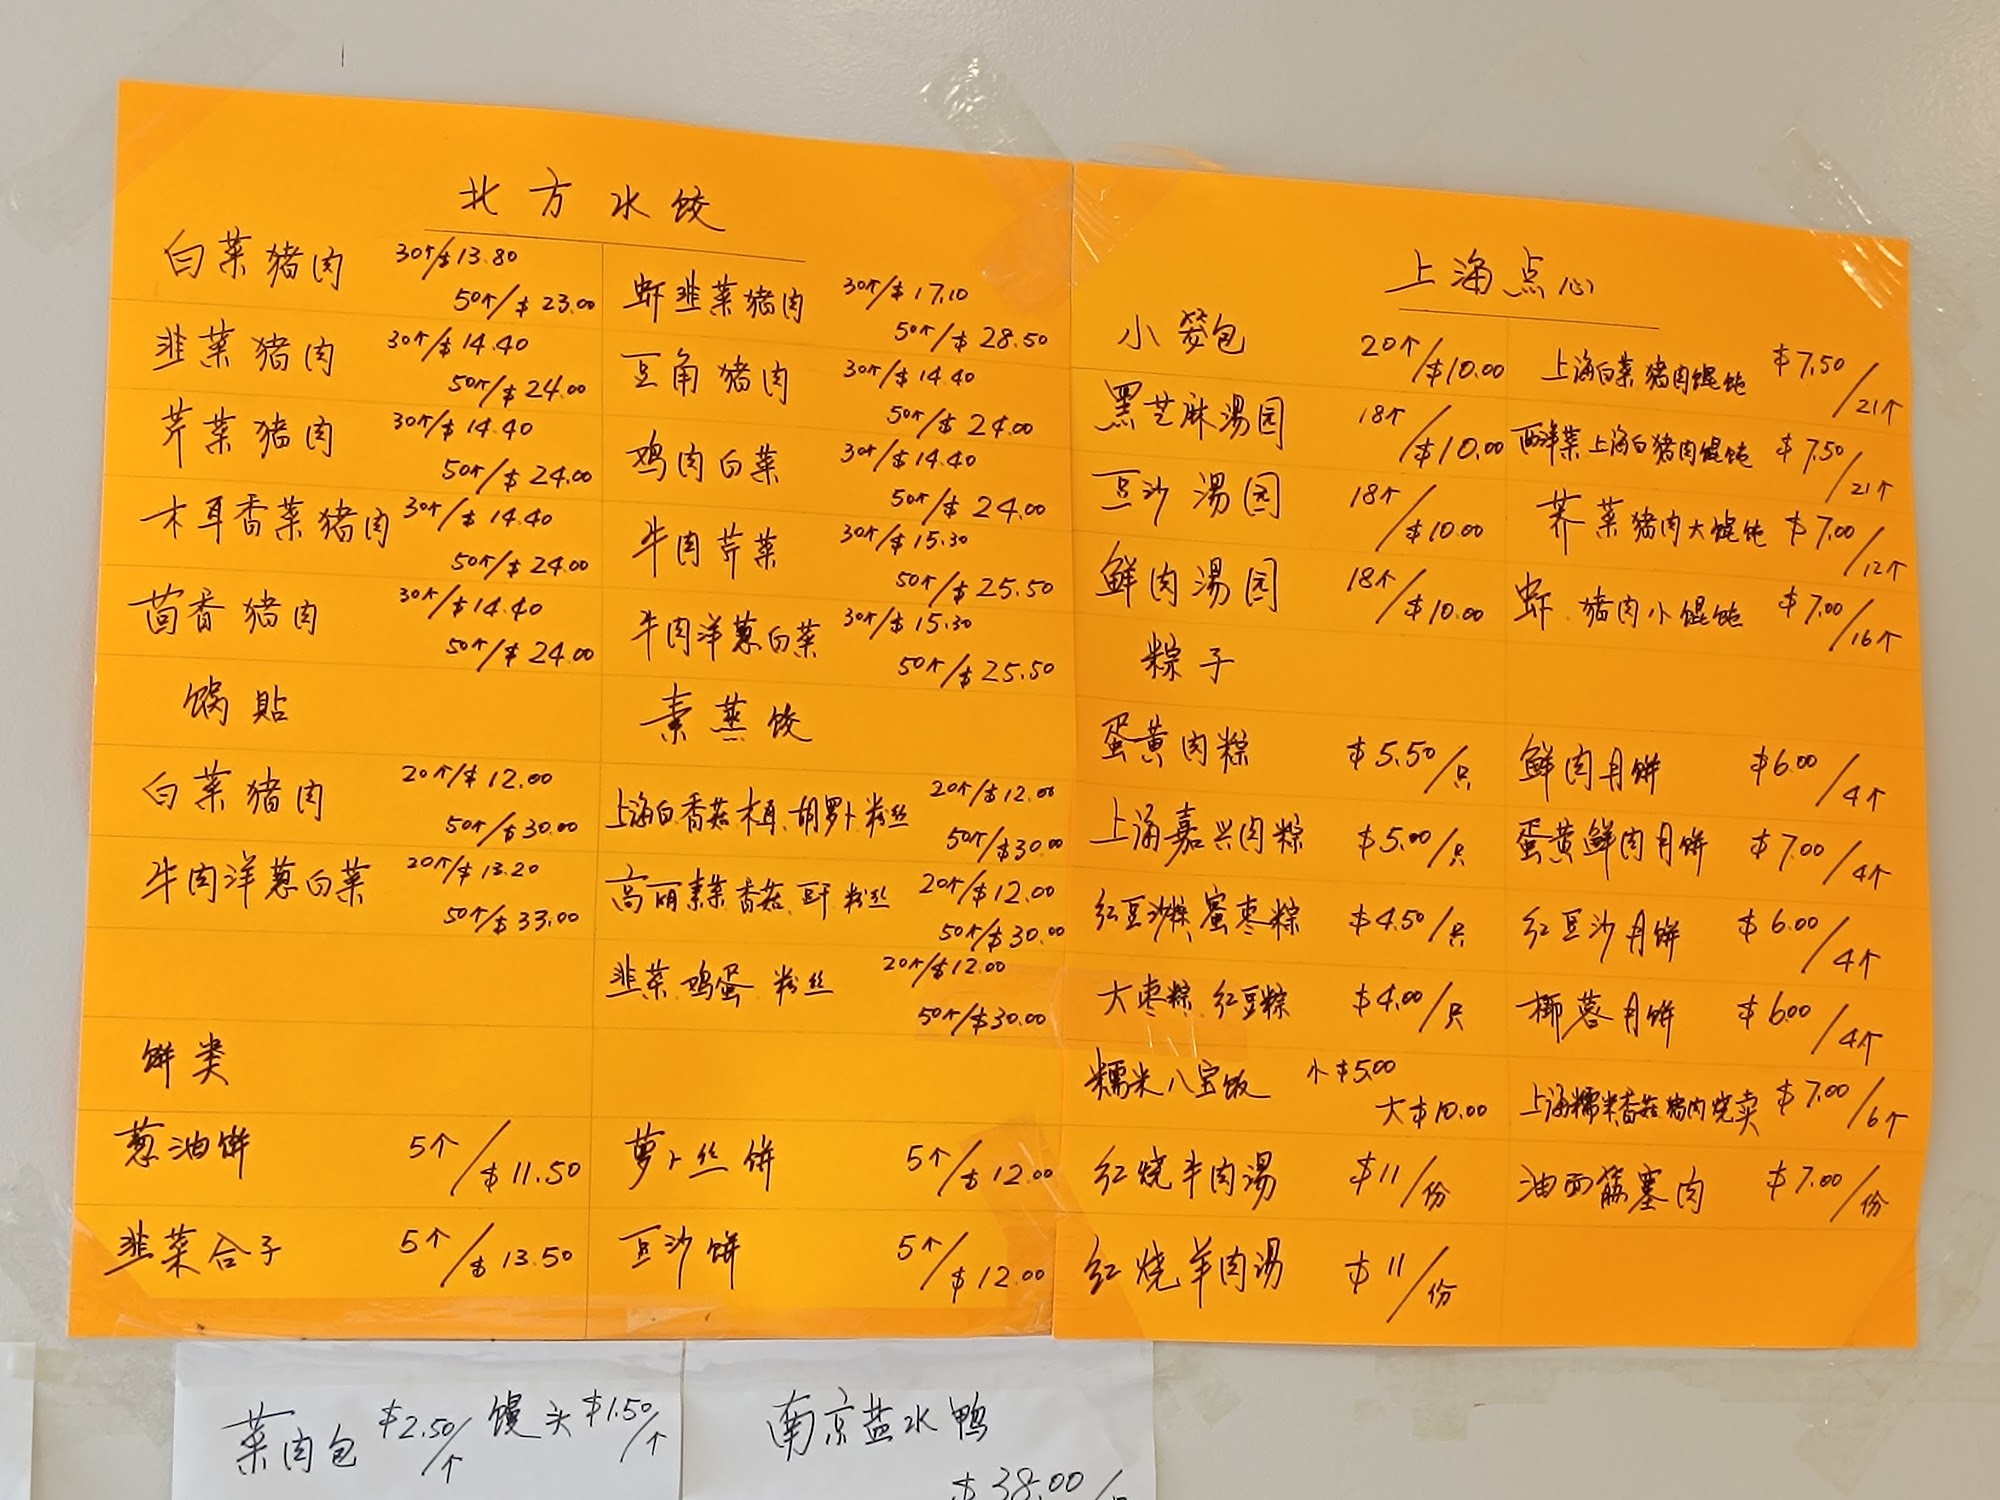 北方水饺
白菜猪肉 30个/$13.80
50个/$23.00
韭菜猪肉 30个/$14.40
50个/$24.00
芹菜猪肉 30个/$14.40
50个/$24.00
木耳香菜猪肉 30个/$14.40
50个/$24.00
茴香猪肉 30个/$14.40
50个/$24.00
锅貼
白菜猪肉 20个/$12.00
50个/$30.00
牛肉洋葱白菜 20个/$13.20
50个/$33.00
饼类
葱油饼 5个/$11.50
韭菜合子 5个/$13.50
虾韭菜猪肉 30个/$17.10
50个/$28.50
豆角猪肉 30个/$14.40
50个/$24.00
鸡肉白菜 30个/$14.40
50个/$24.00
牛肉芹菜 30个/$15.30
50个/$25.50
牛肉洋葱白菜 30个/$15.30
50个/$25.50
素蒸饺
上海白.香菇.木耳.胡罗卜粉丝 20个/$12.00
50个/$30.00
高丽素菜.香菇.豆干.粉丝 20个/$12.00
50个/$30.00
韭菜.鸡蛋.粉丝 20个/$12.00
50个/$30.00
萝卜丝饼 5个/$12.00
豆沙饼 5个/$12.00
上海点心
小笼包 20个/$10.00
黑芝麻湯园 18个/$10.00
豆沙湯园 18个/$10.00
鲜肉湯园 18个/$10.00
粽子
蛋黄肉粽 $5.50/只
上海嘉兴肉粽 $5.00/只
红豆沙粽.蜜枣粽 $4.50/只
大枣粽.红豆粽 $4.00/只
糯米八宝饭 小$5.00
大$10.00
红烧牛肉湯 $11/份
红烧羊肉湯 $11/份
上海白菜猪肉馄饨 $7.50/21个
西洋菜上海白猪肉馄饨 $7.50/21个
荠菜猪肉大馄饨 $7.00/12个
虾.猪肉小馄饨 $7.00/16个
鲜肉月饼 $6.00/4个
蛋黄鲜肉月饼 $7.00/4个
红豆沙月饼 $6.00/4个
椰蓉月饼 $6.00/4个
上海糯米香菇猪肉烧卖 $7.00/6个
油面筋塞肉 $7.00/份
菜肉包 $2.50/个 馒头 $1.50/个
南京盐水鸭
$38.00/